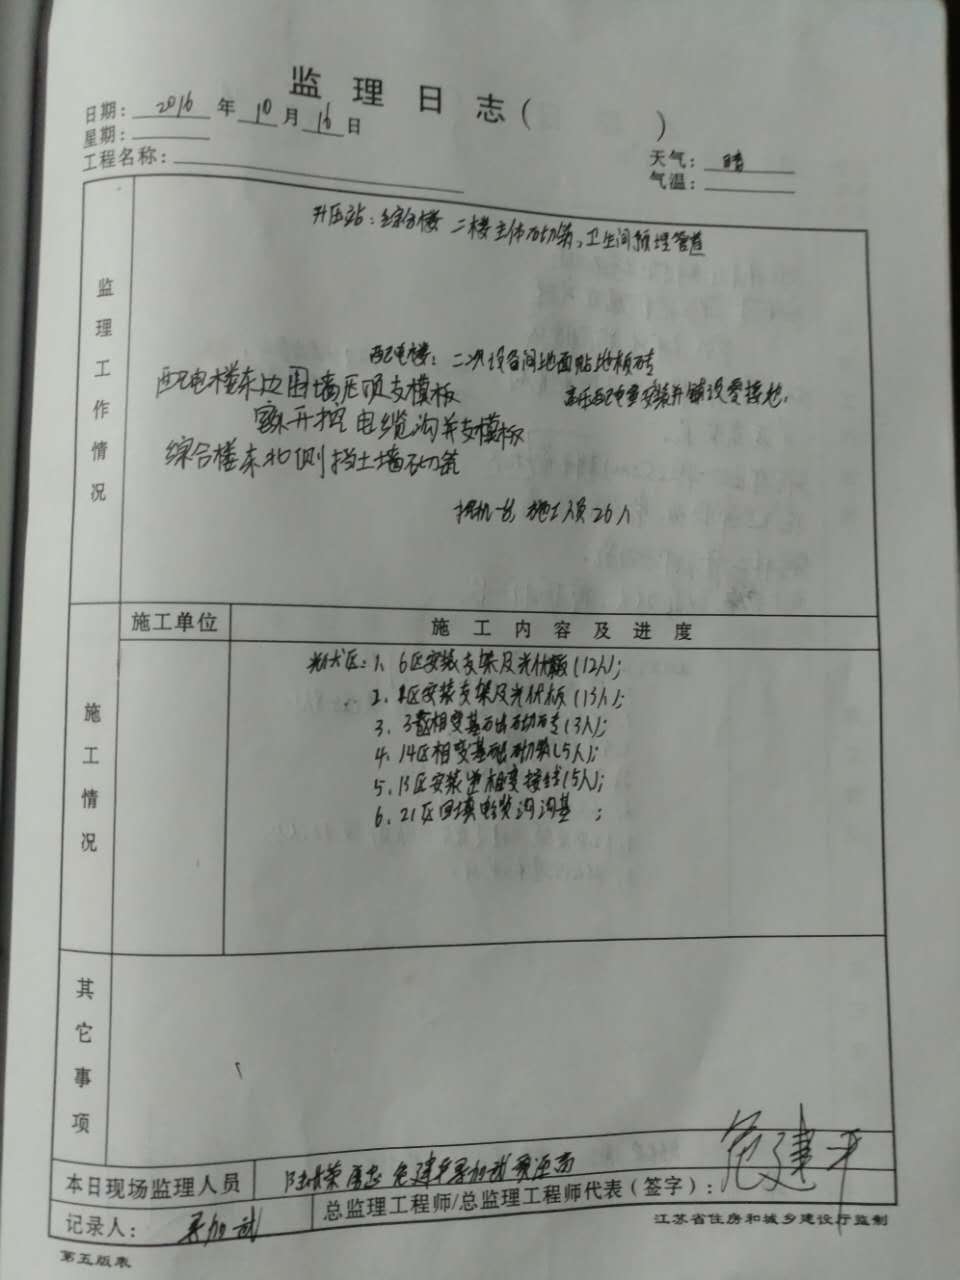 监理日志( )
日期: 2016 年 10 月 16 日
星期:
天气: 晴
工程名称:
气温:
监理工作情况
升压站: 综合楼 二楼主体砌筑, 卫生间预埋管道
配电楼: 二次设备间地面贴地板砖
配电楼东边围墙压顶支模板
高压配电室安装并铺设受接地.
开挖电缆沟并支模板
综合楼东北侧挡土墙砌筑
挖机一台, 施工人员26人
施工情况
施工单位
施工内容及进度
光伏区: 1、6区安装支架及光伏板(12人);
2、区安装支架及光伏板(13人);
3、3区箱变基础砌砖(3人);
4、14区相变基础砌筑(5人);
5、13区安装逆相变接线(5人);
6、21区回填电缆沟沟基;
其它事项
本日现场监理人员
总监理工程师/总监理工程师代表(签字): 危建平
记录人:
江苏省住房和城乡建设厅监制
第五版表